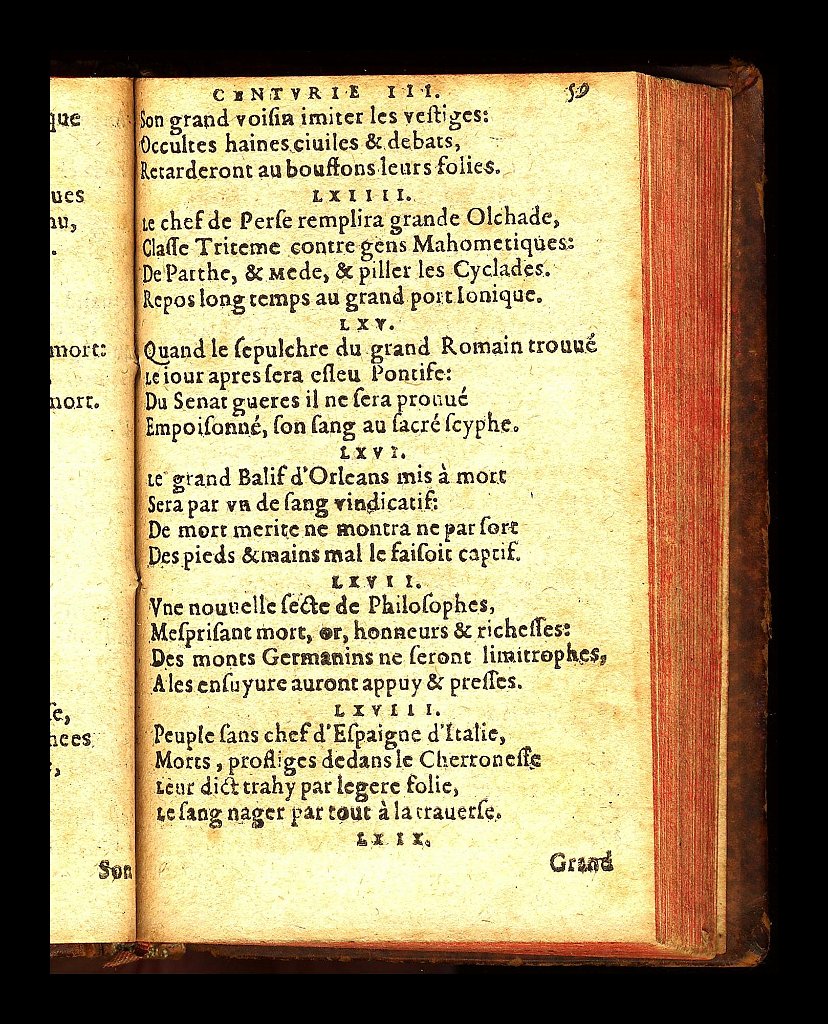 que
ues
nu,
mort:
nort.
se,
nces
Son
CENTVRIE III. 59
Son grand voiſin imiter les veſtiges:
Occultes haines ciuiles & debats,
Retarderont au bouffons leurs folies.
LXIIII.
Le chef de Perſe remplira grande Olchade,
Claſſe Trireme contre gens Mahometiques:
De Parthe, & Mede, & piller les Cyclades.
Repos long temps au grand port Ionique.
LXV.
Quand le ſepulchre du grand Romain trouué
Le iour apres ſera eſleu Pontife:
Du Senat gueres il ne ſera prouué
Empoiſonné, ſon ſang au ſacré ſcyphe.
LXVI.
Le grand Balif d'Orleans mis à mort
Sera par vn de ſang vindicatif:
De mort merite ne montra ne par ſort
Des pieds & mains mal le faiſoit captif.
LXVII.
Vne nouuelle ſecte de Philoſophes,
Meſpriſant mort, or, honneurs & richeſſes:
Des monts Germanins ne ſeront limitrophes,
A les enſuyure auront appuy & preſſes.
LXVIII.
Peuple ſans chef d'Eſpaigne d'Italie,
Morts, profliges dedans le Cherroneſſe
Leur dict trahy par legere folie,
Le ſang nager par tout à la trauerſe.
LXIX.
Grand